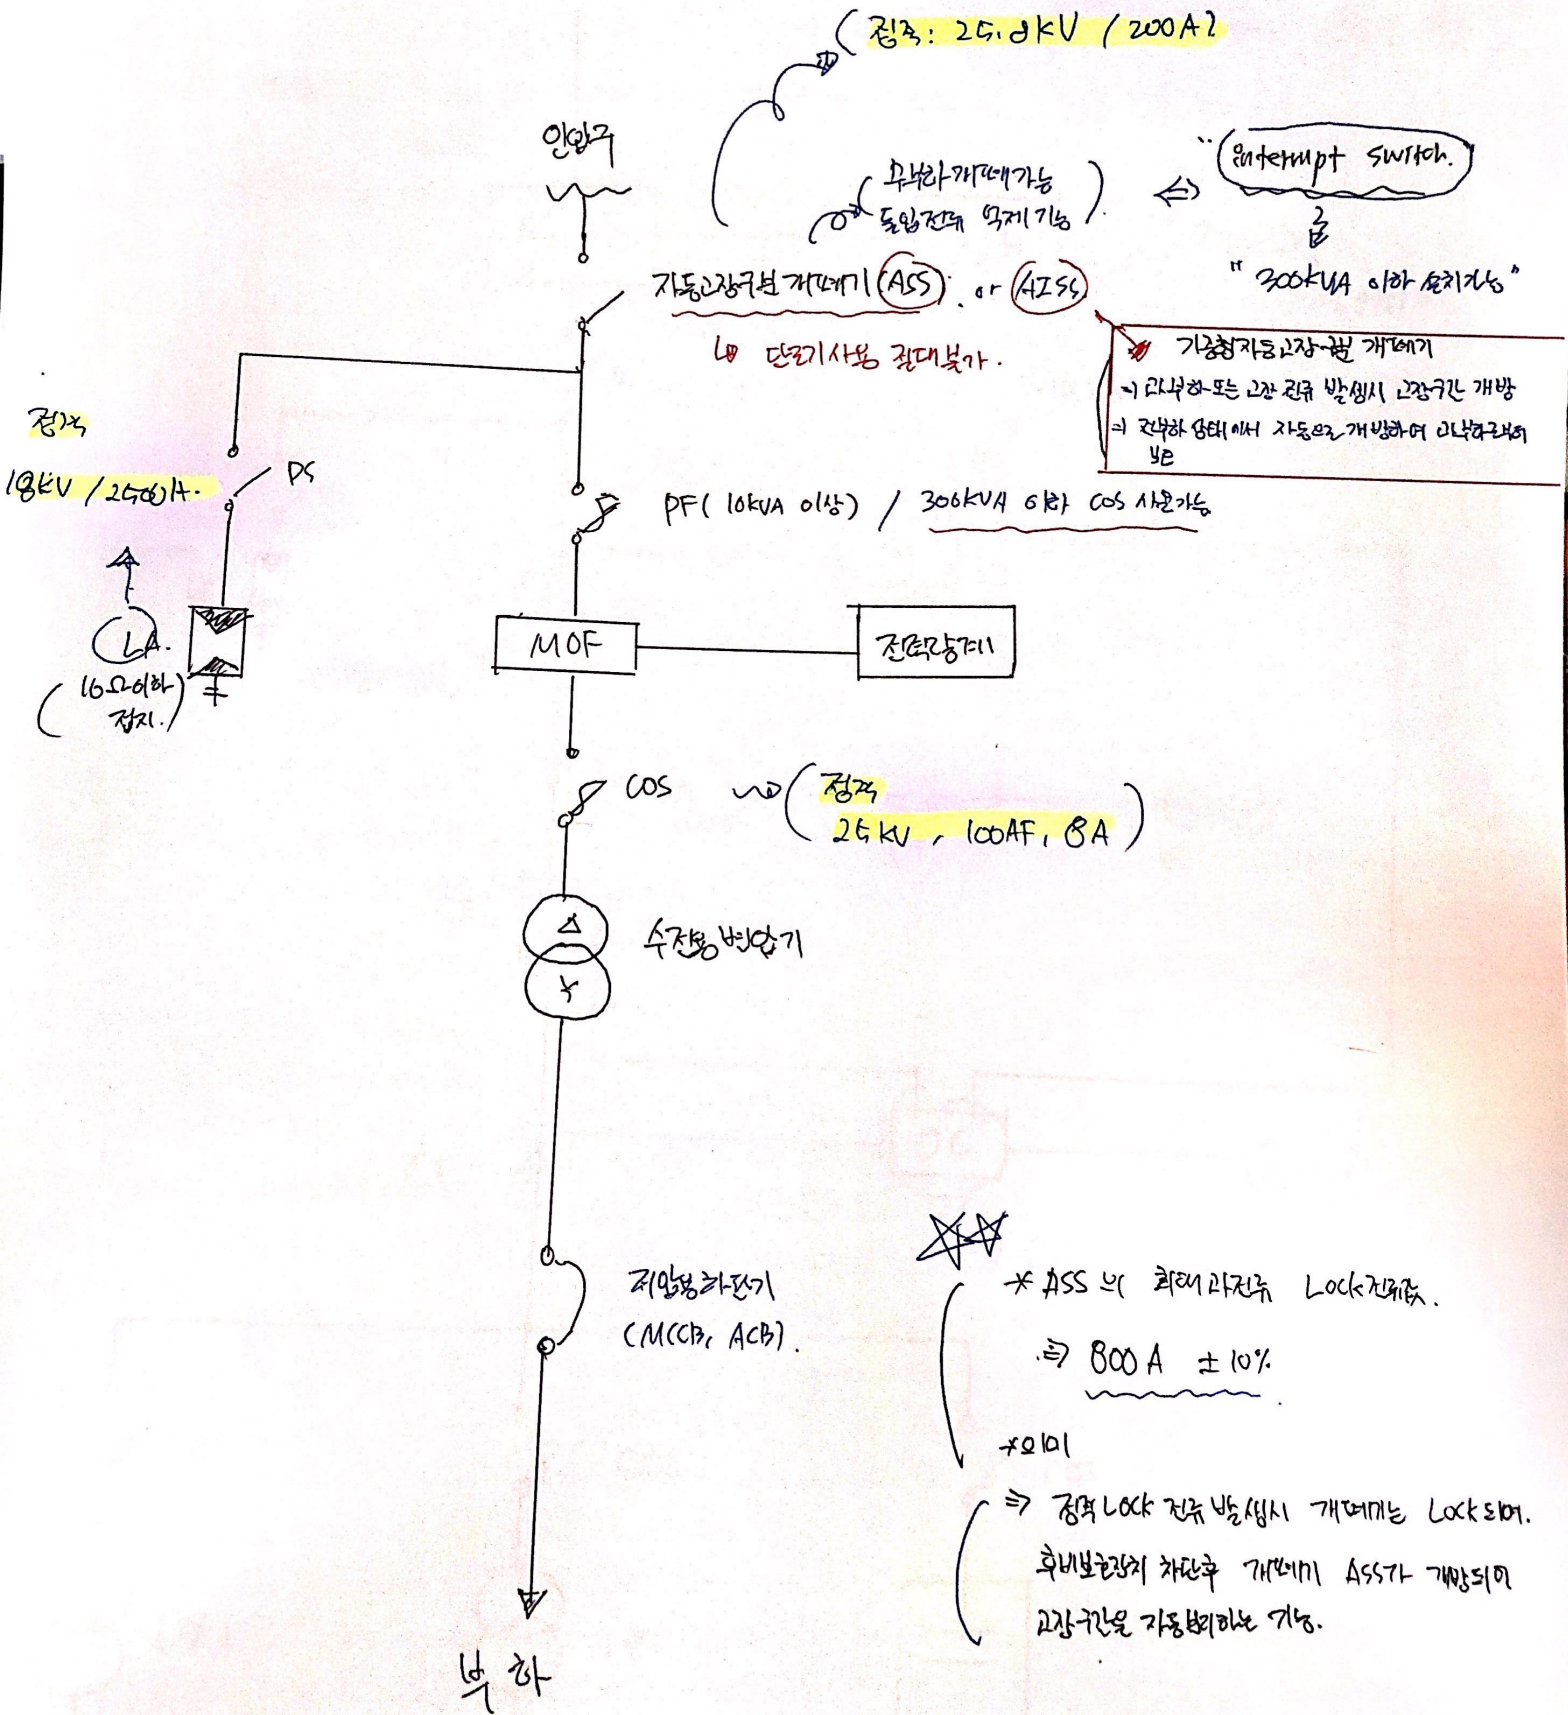 정격: 25.8kV / 200A
인입구
무부하 개폐가능
돌입전류 억제기능
"interrupt switch.
"300kVA 이하 설치가능"
자동고장구분 개폐기 (ASS) or (AISS)
단로기사용 절대불가.
기중형자동고장구분 개폐기
⇒ 과부하 또는 고장 전류 발생시 고장구간 개방
⇒ 전부하 상태에서 자동으로 개방하여 과부하로부터
보호
정격
18kV / 2500A.
DS
PF( 10kVA 이상) / 300kVA 이하 COS 사용가능
LA.
(10Ω이하)
접지.
MOF
전력량계
COS
정격
25kV, 100AF, 8A
Δ
Y
수전용변압기
저압용차단기
(MCCB, ACB).
* ASS의 최대과전류 Lock전류값.
⇒ 800A ±10%
*의미
⇒ 정격Lock 전류 발생시 개폐기는 Lock되며.
후비보호장치 차단후 개폐기 ASS가 개방되어
고장구간을 자동분리하는 기능.
부하